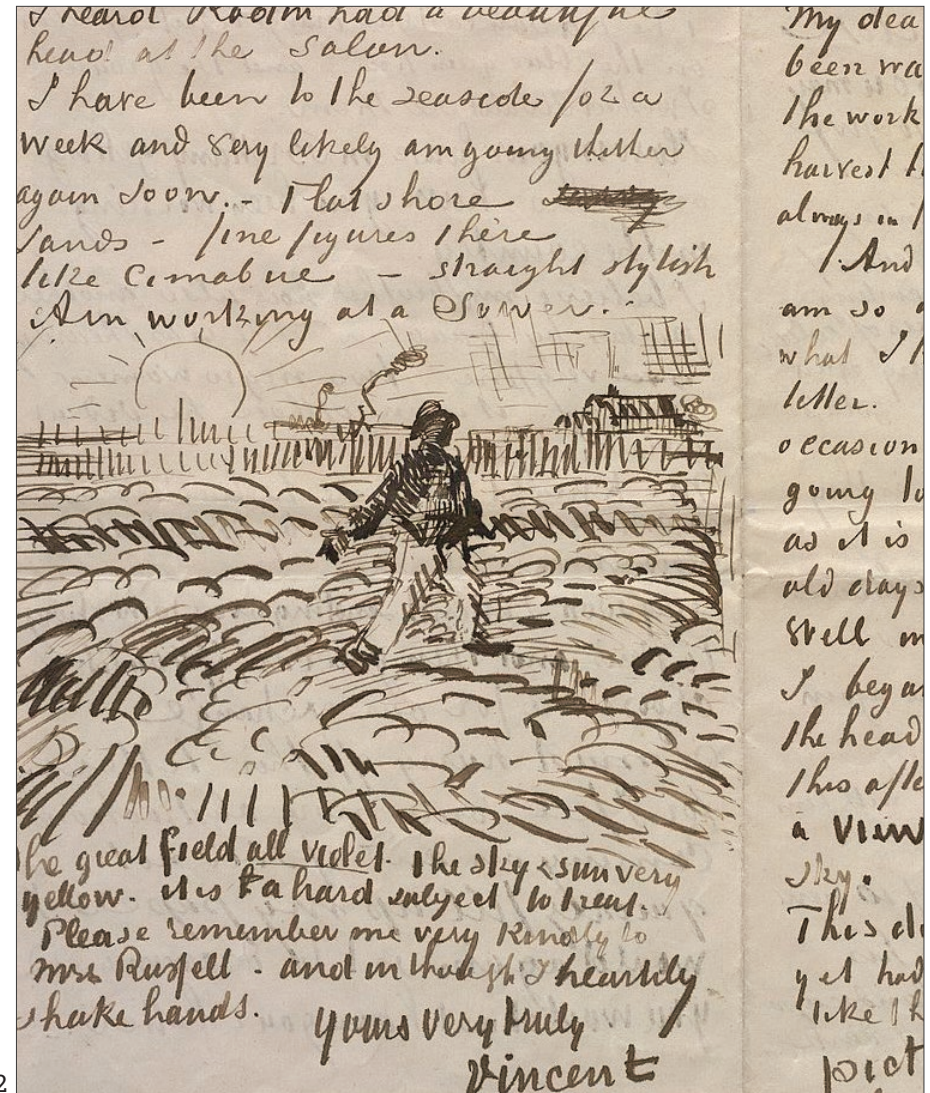 I heard Rodin had a beautiful
head at the Salon.
I have been to the seaside for a
week and very likely am going thither
again soon. - Flat shore
sands - fine figures there
like Cimabue - straight stylish
Am working at a Sower.
he great field all violet. the sky & sun very
yellow. it is a hard subject to treat.
Please remember me very kindly to
mrs Russell - and in thought I heartily
shake hands.
yours very truly
Vincent
My dea
been wa
the work
harvest
always in
And
am so
what I
letter.
occasion
going
as it is
old days
Still
I began
the head
this afte
a View
sky.
This
yet had
like
pict
2